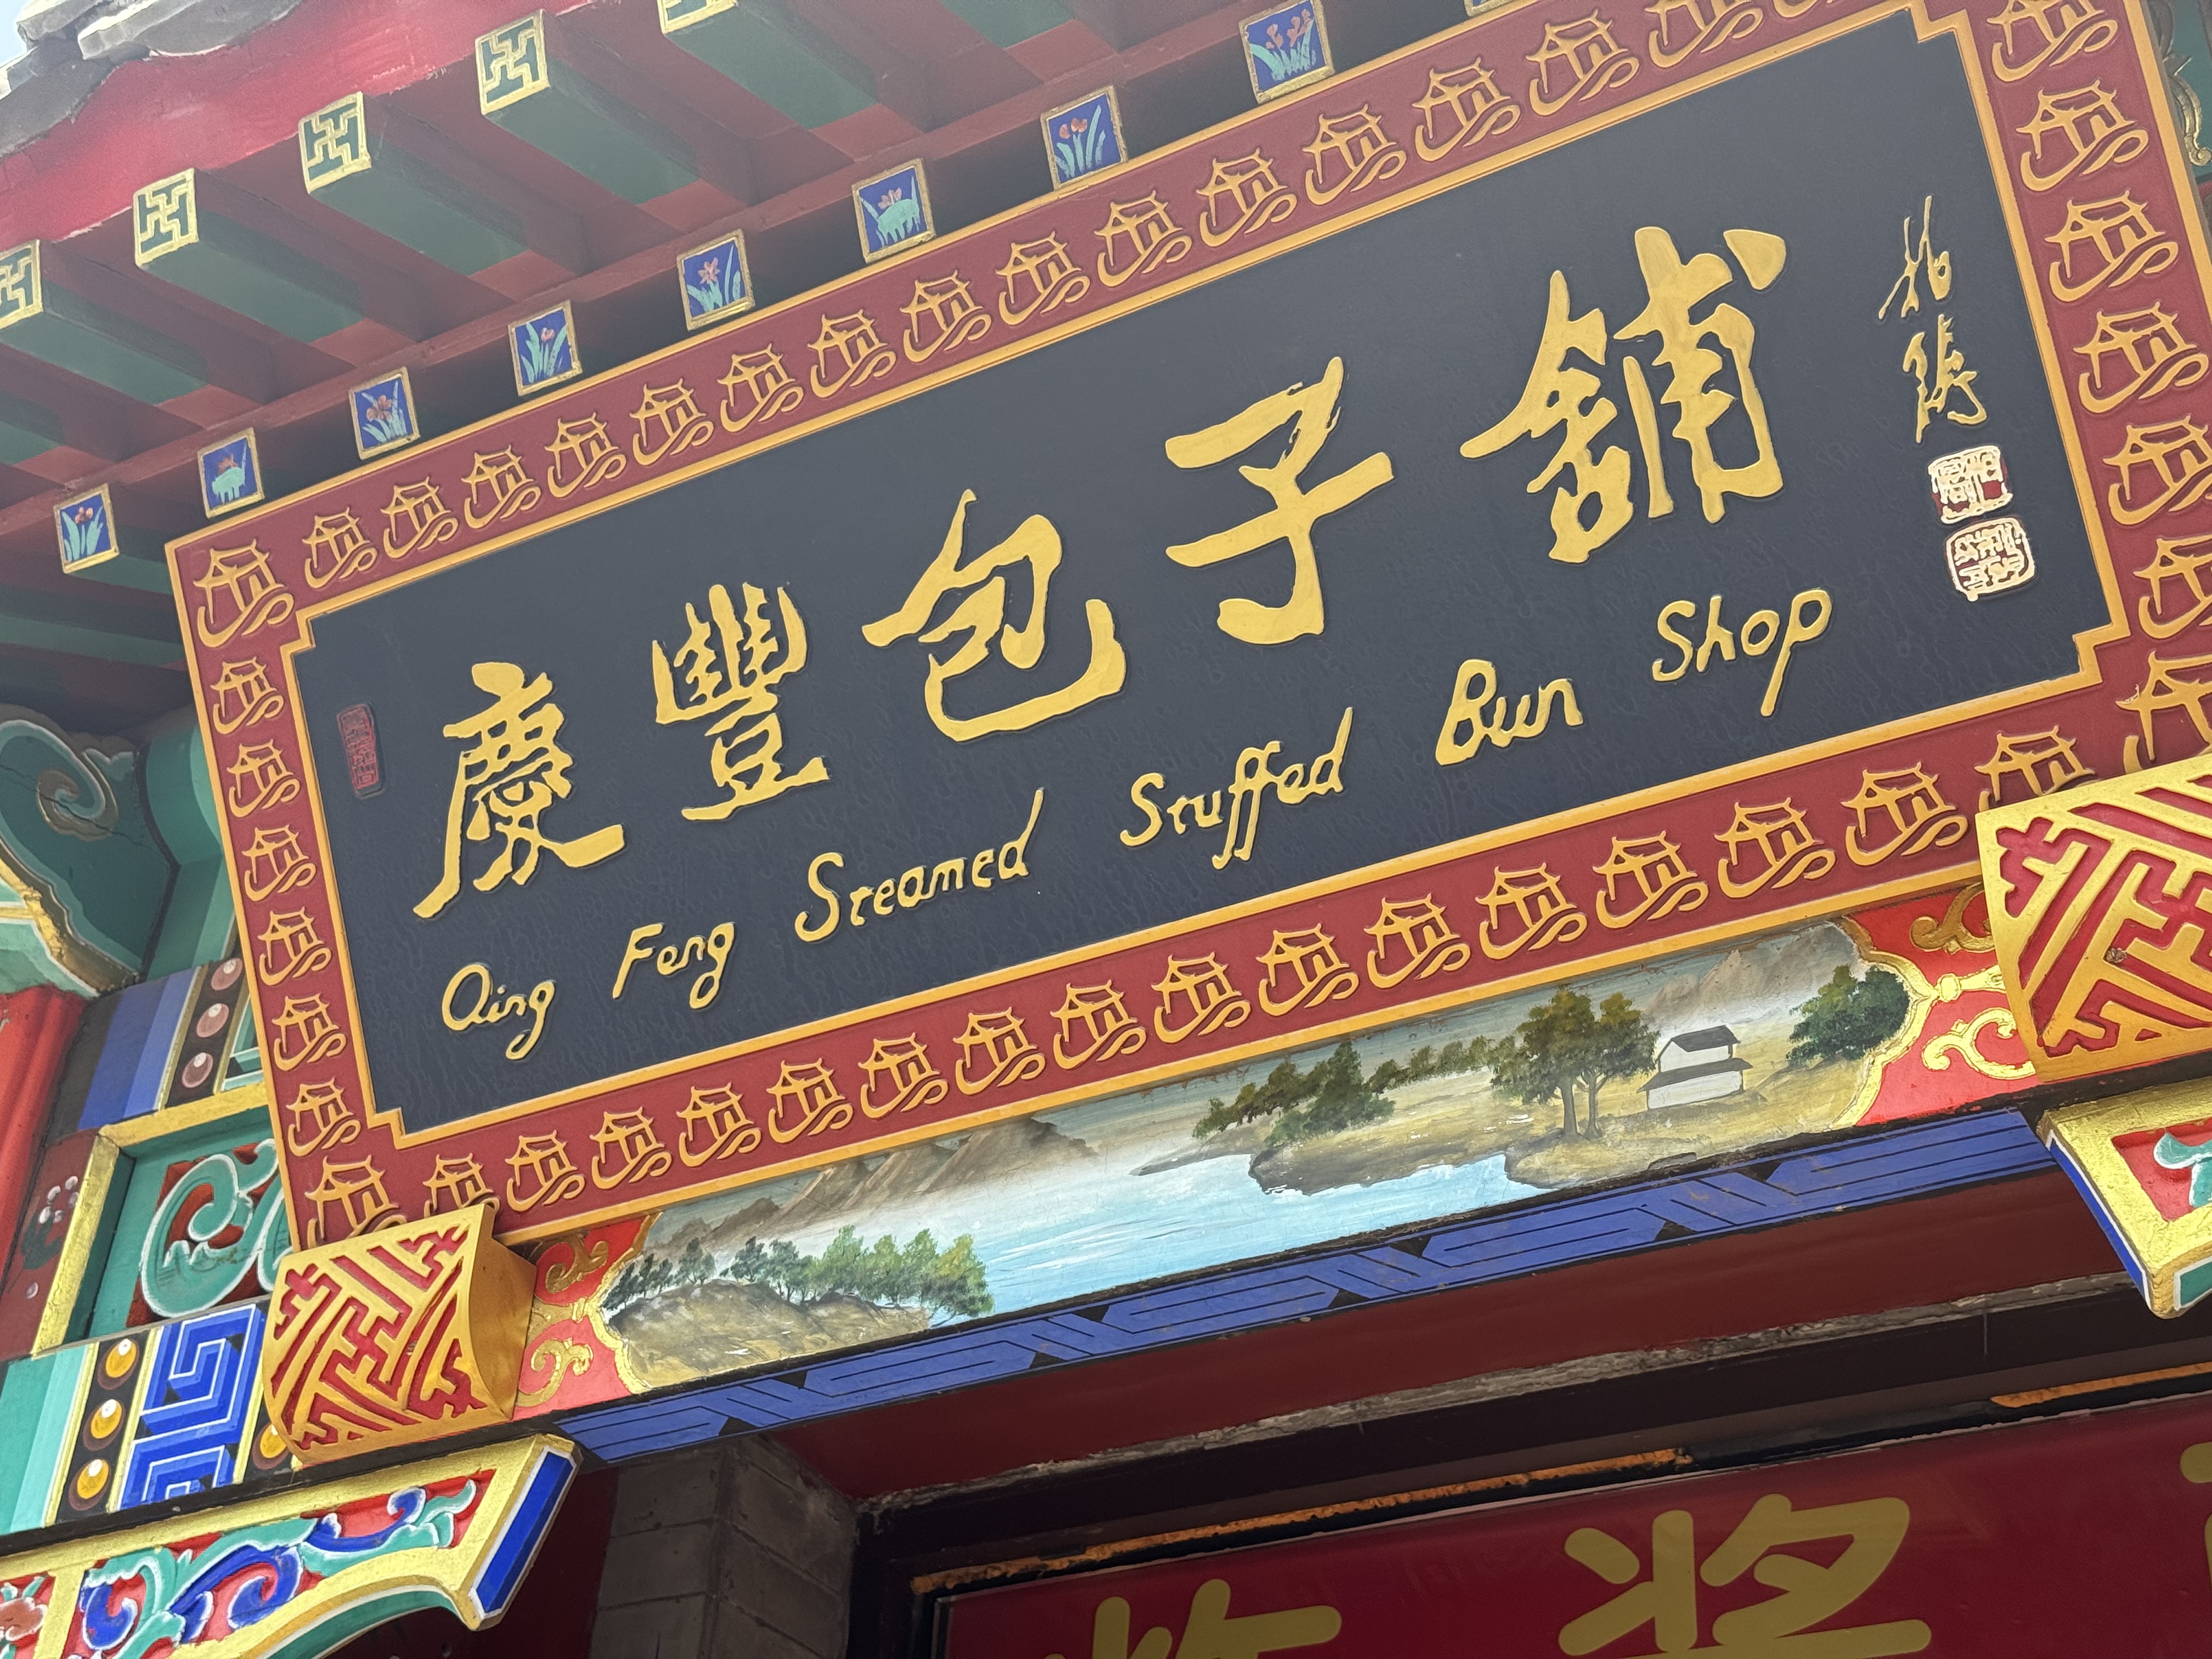 慶豐包子舖
Qing Feng Steamed Stuffed Bun Shop
奖